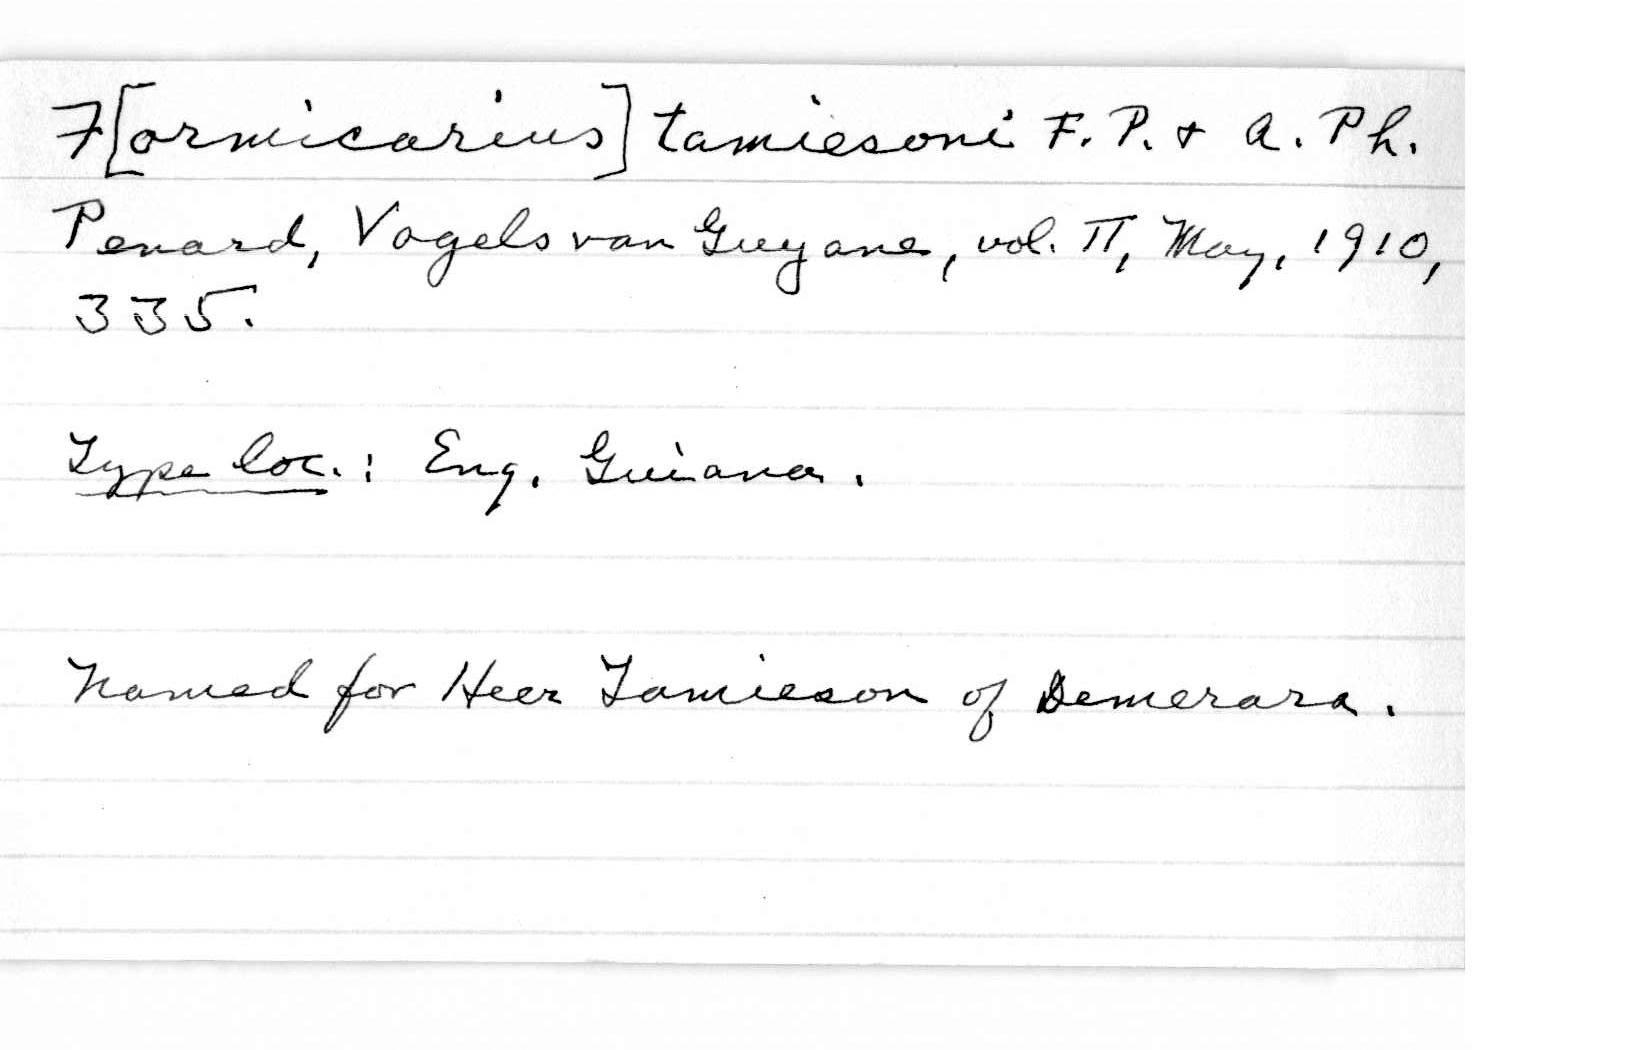 F[ormicarius] tamiesoni F. P. & A. Ph.
Penard, Vogels van Guyana, vol. II, May, 1910,
335.
Type loc.: Eng. Guiana.
Named for Heer Tamieson of Demerara.